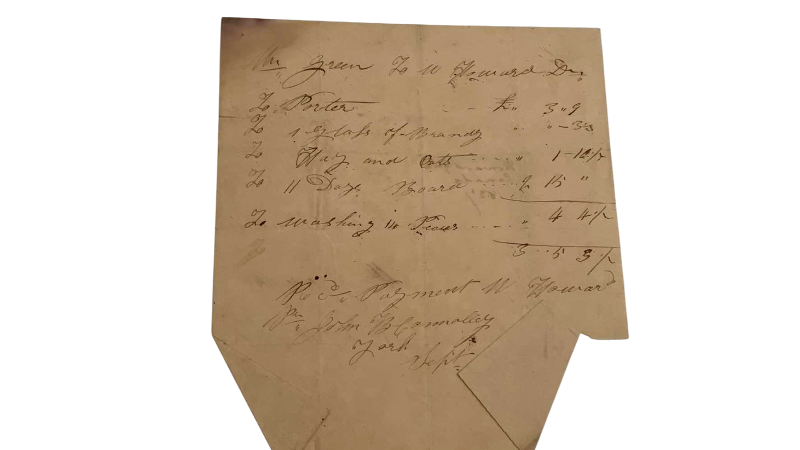 Mr Green To W Howard Dr.
To Porter £ " 3 " 9
To 1 Glass of Brandy " " - 3½
To Hay and Oats " 1 - 12½
To 11 Days Board 2 15 "
To washing in " 4 4½
3 5 3½
Recd. Payment W Howard
pr John B Connolley
York
Sept